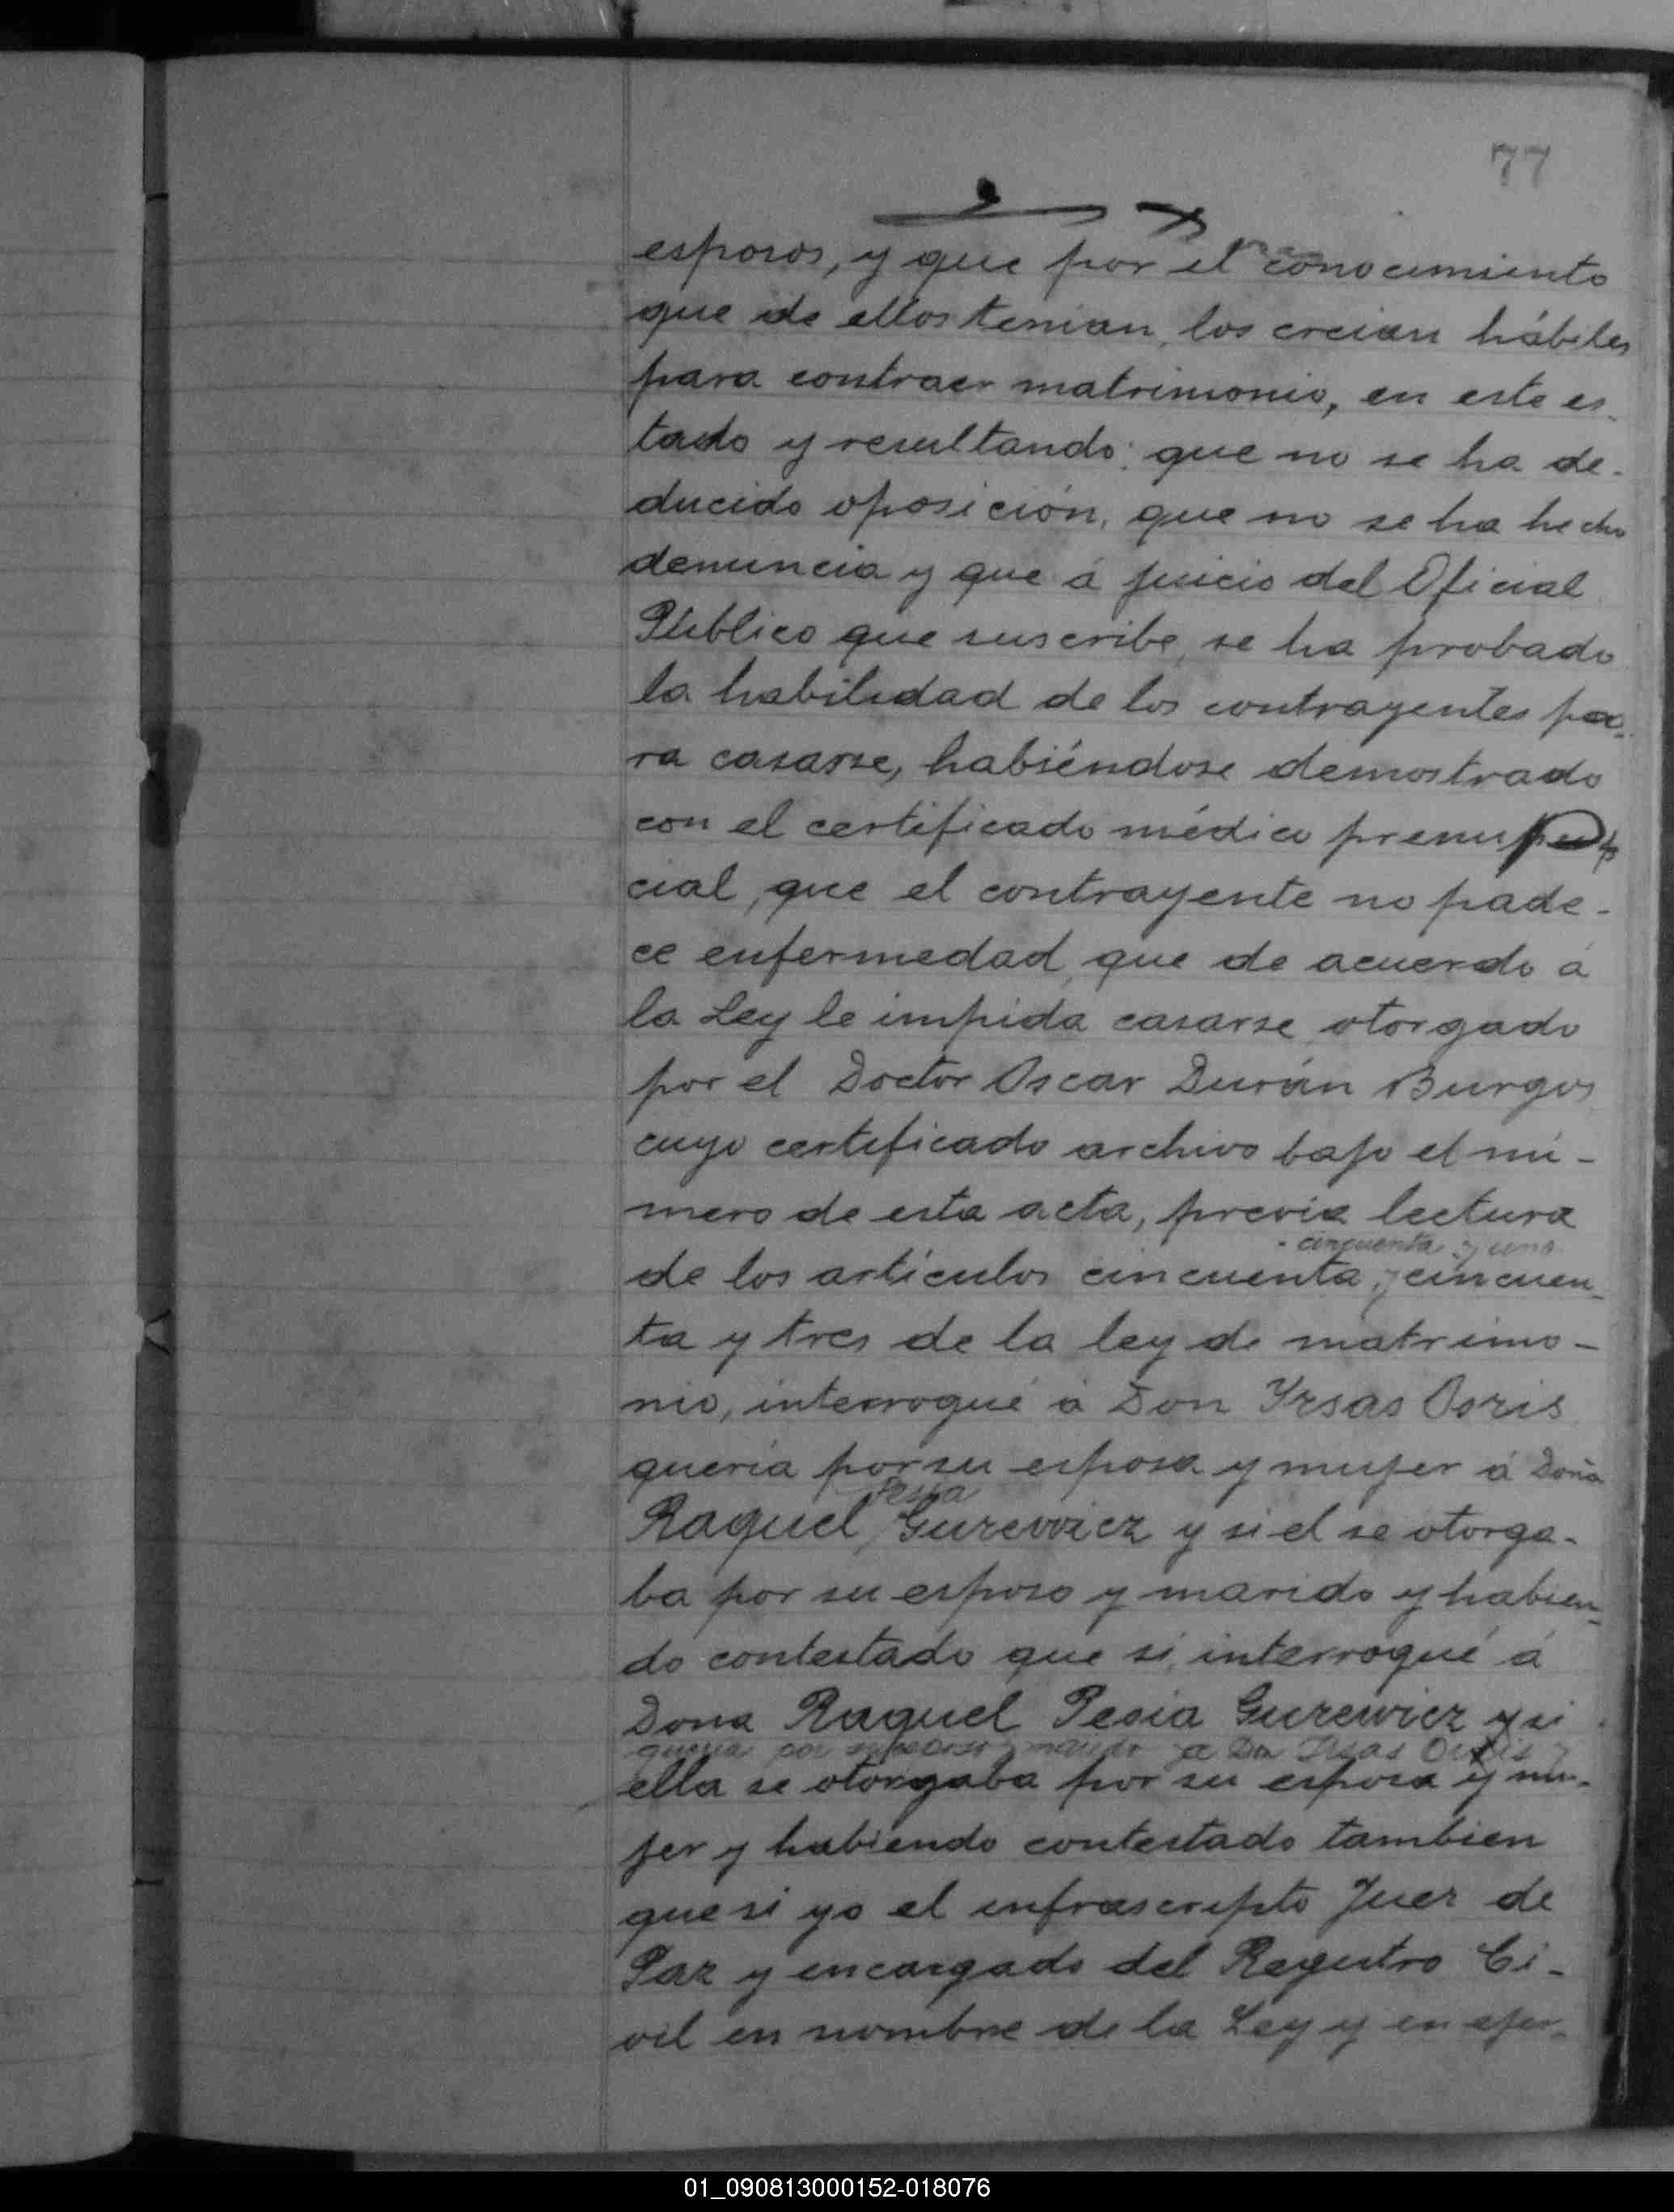 77
esposos, y que por el conocimiento
que de ellos tenian, los creian hábiles
para contraer matrimonio, en este es-
tado y resultando: que no se ha de-
ducido oposición, que no se ha hecho
denuncia y que á juicio del Oficial
Público que suscribe, se ha probado
la habilidad de los contrayentes pa-
ra casarse, habiéndose demostrado
con el certificado médico prenup
cial, que el contrayente no pade-
ce enfermedad, que de acuerdo á
la Ley le impida casarse, otorgado
por el Doctor Oscar Durán Burgos
cuyo certificado archivo bajo el nú-
mero de esta acta, previa lectura
cincuenta y uno
de los artículos cincuenta, y cincuen-
ta y tres de la ley de matrimo-
nio, interrogué á Don Yrsas Osris
quería por su esposa y mujer á Doña
Pesia
Raquel, Gurewicz y si el se otorga-
ba por su esposo y marido y habien-
do contestado que si, interrogué á
Dona Raquel Pesia Gurewicz y si
queria por su esposo y marido a Don
ella se otorgaba por su esposa y mu-
jer y habiendo contestado tambien
que si yo el infrascripto Juez de
Paz y encargado del Registro Ci-
vil en nombre de la Ley y en ejer-
01_090813000152-018076